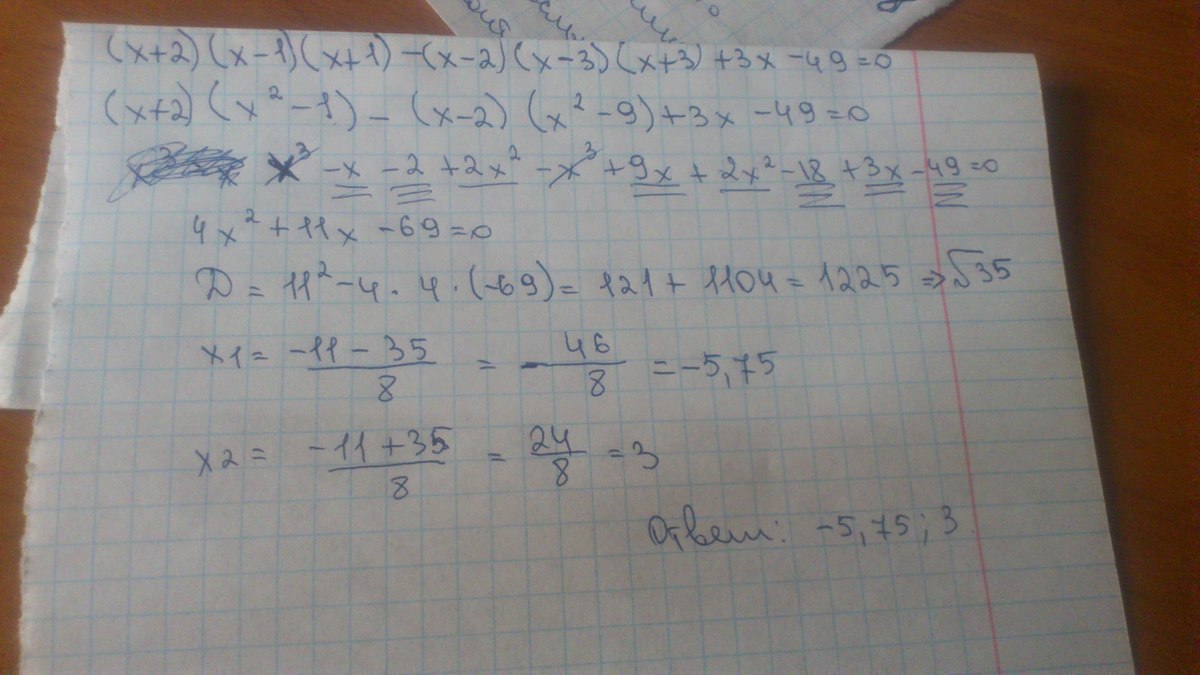 (x+2)(x-1)(x+1)-(x-2)(x-3)(x+3)+3x-49=0
(x+2)(x²-1)-(x-2)(x²-9)+3x-49=0
x³-x-2+2x²-x³+9x+2x²-18+3x-49=0
4x²+11x-69=0
D=11²-4·4·(-69)=121+1104=1225 ⇒√35
x1=(-11-35)/8=-46/8=-5,75
x2=(-11+35)/8=24/8=3
Ответ: -5,75; 3